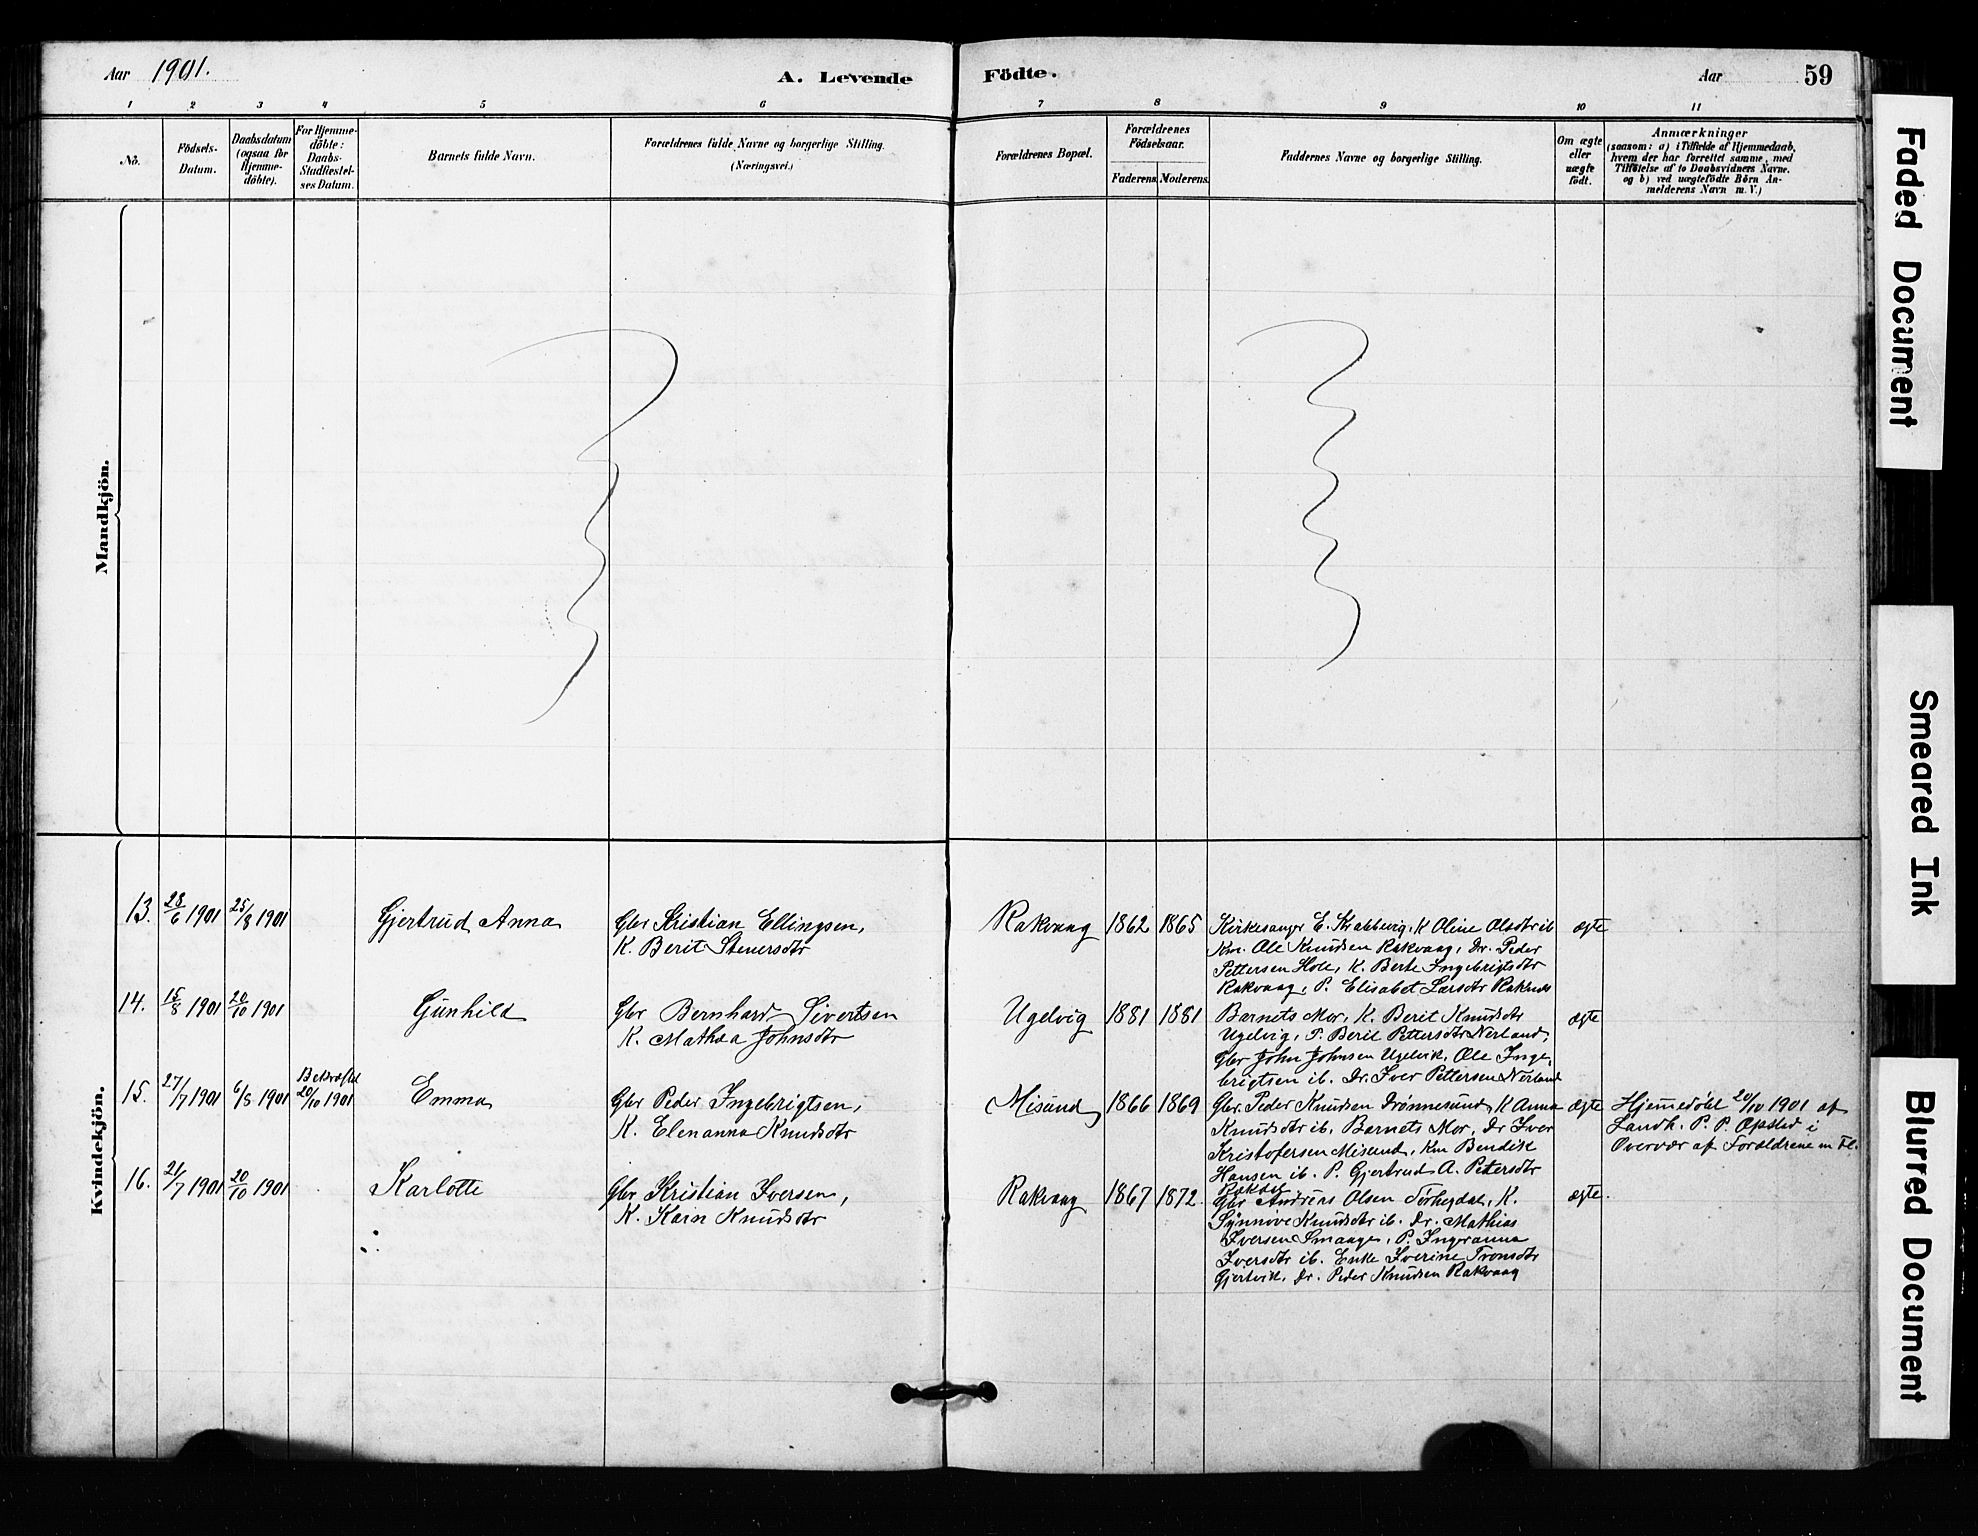 Aar 1901. A. Levende Födte. Aar 59
1 2 3 4 5 6 7 8 9 10 11
No.
Födsels-Datum.
Daabsdatum (ogsaa for Hjemme-döbte).
For Hjemme-döbte: Daabs-Stadfæstel-ses Datum.
Barnets fulde Navn.
Forældrenes fulde Navne og borgerlige Stilling. (Næringsvei.)
Forældrenes Bopæl.
Forældrenes Födselsaar.
Faderens. Moderens.
Faddernes Navne og borgerlige Stilling.
Om ægte eller uægte födt.
Anmærkninger
(saasom: a) i Tilfælde af Hjemmedaab,
hvem der har forrettet samme, med
Tilföielse af to Daabsvidners Navne.
og b) ved uægtefödte Börn An-
melderens Navn m. V.)
Mandkjön.
Kvindekjön.
13. 28/6 1901 25/8 1901 Gjertrud Anna
Gbr Kristian Ellingsen,
K. Berit Steuersdtr
Rakvaag 1862 1865
Kirkesanger E. Krabbevig, K Oline Olsdtr ib
Km. Ole Knudsen Rakvaag, Dr. Peder
Pettersen Hole, K. Berte Ingebrigtsdtr
Rakvaag, P. Elisabet Larsdtr
ægte
14. 15/8 1901 20/10 1901 Gunhild
Gbr Bernhard Sivertsen
K. Mathea Johnsdtr
Ugelvig 1881 1881
Barnets Mor, K. Berit Knudsdtr
Ugelvig, P. Berit Pettersdtr Nerland,
Gbr John Johnsen Ugelvik, Ole Inge-
brigtsen ib. Dr. Iver Pettersen Nerland
ægte
15. 27/7 1901 6/8 1901 Bekræftet 20/10 1901 Emma
Gbr Peder Ingebrigtsen,
K. Elenanna Knudsdtr
Misund 1866 1869
Gbr. Peder Knudsen Drønnesund, K Anna
Knudsdtr ib, Barnets Mor, Dr Iver
Kristofersen Misund, Km Bendik
Hansen ib. P. Gjertrud A. Petersdtr
ægte
Hjemmedøbt 20/10 1901 af
Landh. P. P. Opsted i
Overvær af Forældrene m Fl.
16. 21/7 1901 20/10 1901 Karlotte
Gbr Kristian Iversen,
K. Karn Knudsdtr
Rakvaag 1867 1872
Gbr Andreas Olsen K.
Synnøve Knudsdtr ib. Dr. Mathias
Iversen Smaage, P. Ingeranna
Iversdtr ib. Enke Iverine Tronsdtr
Gjertvik, Dr. Peder Knudsen Rakvaag
ægte.
Faded Document
Smeared Ink
Blurred Document